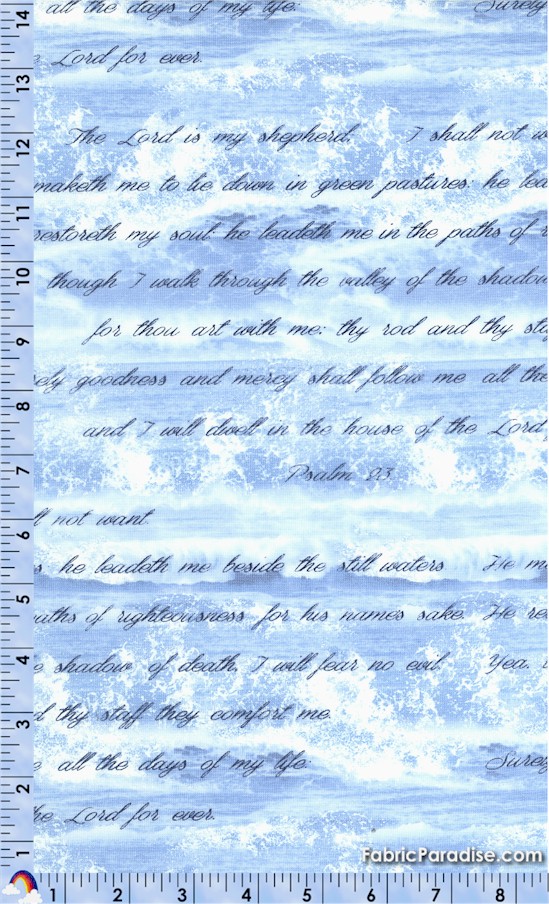 all the days of my life: Surely
Lord for ever.
The Lord is my shepherd; I shall not w
maketh me to lie down in green pastures: he lea
restoreth my soul: he leadeth me in the paths of r
though I walk through the valley of the shadow
for thou art with me: thy rod and thy sta
ely goodness and mercy shall follow me all the
and I will dwell in the house of the Lord
Psalm 23
ll not want.
s he leadeth me beside the still waters He m
aths of righteousness for his names sake. He res
e shadow of death, I will fear no evil: Yea,
d thy staff they comfort me.
e all the days of my life: Surely
he Lord for ever.
FabricParadise.com
14
13
12
11
10
9
8
7
6
5
4
3
2
1
1 2 3 4 5 6 7 8